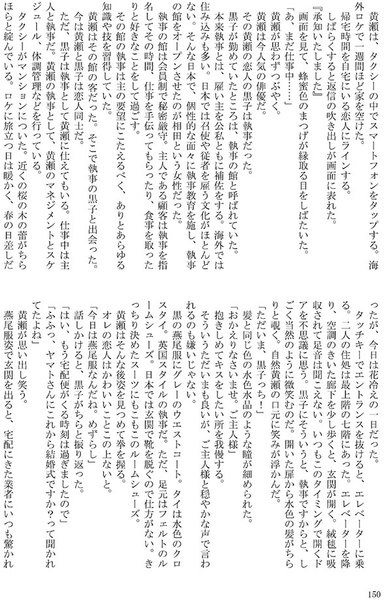 黄瀬は、タクシーの中でスマートフォンをタップする。海
外ロケで一週間ほど家を空けた。
帰宅時間を自宅にいる恋人にラインする。
しばらくすると返信の吹き出しが画面に表れた。
『承知いたしました』
画面を見て、蜂蜜色のまつげが縁取る目をしばたいた。
「あ、まだ仕事中……」
黄瀬が思わずつぶやく。
黄瀬は今人気の俳優だ。
その黄瀬の恋人の黒子は執事だった。
黒子が勤めていたところは、執事の館と呼ばれていた。
本来執事とは、雇い主を公私ともに補佐をする。海外では
住み込みが多い。日本では召使や従者を雇う文化がほとんど
ない。そんな日本で、個性的な面々に執事教育を施し、執事
の館をオープンさせたのが相田という女性だった。
執事の館は会員制で秘密厳守。主人である顧客は執事を指
名してその時間、仕事を手伝ってもらったり、食事を取った
りと好きなことをして過ごす。
その館の執事は主の要望にこたえるべく、ありとあらゆる
知識や技を習得していた。
黄瀬はその館の客だった。そこで執事の黒子と出会った。
今は黄瀬と黒子は恋人同士だ。
ただ、黒子は執事として黄瀬に仕えてもいる。仕事中は主
人と執事だ。黄瀬の執事として、黄瀬のマネジメントとスケ
ジュール、体調管理などを行っている。
タクシーがマンションについた。近くの桜の木の蕾がちら
ほらと綻んでいる。ロケに旅立つ日は暖かく、春の日差しだ
ったが、今日は花冷えの一日だった。
タッチキーでエントランスを抜けると、エレベーターに乗
る。二人の住処は最上階の七階にあった。エレベーターを降
り、空調のきいた廊下を少し歩くと、玄関が開く。絨毯に吸
収されて足音は聞こえない。いつもこのタイミングで開くド
アを不思議に思う。黒子にそういうと、執事ですからと、し
ごく当然のように微笑むのだ。開いた扉から水色の髪がちら
りと覗く。自然黄瀬の口元に笑みが浮かんだ。
「ただいま、黒子っち！」
「おかえりなさいませ。ご主人様」
髪と同じ色の水色水晶のような瞳が細められた。
抱きしめてキスをしたい所を我慢する。
そういうただいまも良いが、ご主人様と穏やかな声で言わ
れるのも嫌いじゃない。
黒の燕尾服にグレーのウエストコート。タイは水色のクロ
スタイ。英国スタイルの執事だ。ただ、足元はフェルトのル
ームシューズ。日本では玄関で靴を脱ぐので仕方がない。き
っちり決めたスーツにもこもこのルームシューズ。
黄瀬はそんな後姿を見つめて拳を握る。
オレの恋人はかわいいことこの上ないと。
「今日は燕尾服なんだね。めずらし」
話しかけると、黒子がちらと振り返った。
「はい、もう宅配便がくる時刻は過ぎましたので」
「ふふっ、ヤマトさんにこれから結婚式ですか？って聞かれ
てたよね」
黄瀬が思い出し笑う。
燕尾服姿で玄関を出ると、宅配にきた業者にいつも驚かれ
150